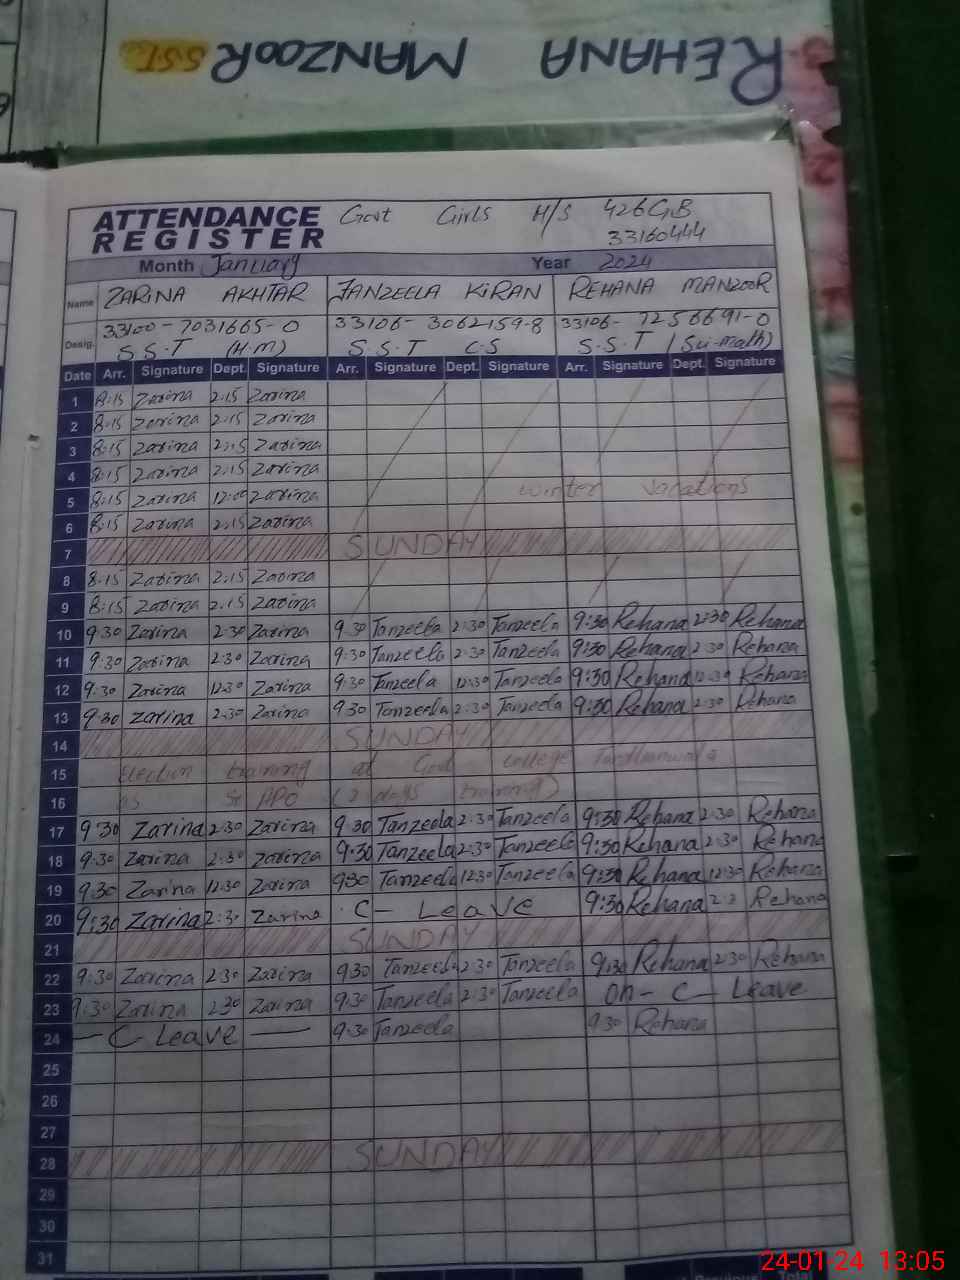 REHANA MANZOOR S.S.T
ATTENDANCE REGISTER Govt Girls H/S 426GB
33160444
Month January Year 2024
Name ZARINA AKHTAR TANZEELA KIRAN REHANA MANZOOR
33100-7031665-0 33106-3062159-8 33106-7256691-0
Desig. S.S.T (H.M) S.S.T C.S S.S.T (Sci-math)
Date Arr. Signature Dept. Signature Arr. Signature Dept. Signature Arr. Signature Dept. Signature
1 8:15 Zarina 2:15 Zarina
2 8:15 Zarina 2:15 Zarina
3 8:15 Zarina 2:15 Zarina
4 8:15 Zarina 2:15 Zarina
5 8:15 Zarina 12:00 Zarina winter vacations
6 8:15 Zarina 2:15 Zarina
7 SUNDAY
8 8:15 Zarina 2:15 Zarina
9 8:15 Zarina 2:15 Zarina
10 9:30 Zarina 2:30 Zarina 9:30 Tanzeela 2:30 Tanzeela 9:30 Rehana 2:30 Rehana
11 9:30 Zarina 2:30 Zarina 9:30 Tanzeela 2:30 Tanzeela 9:30 Rehana 2:30 Rehana
12 9:30 Zarina 12:30 Zarina 9:30 Tanzeela 12:30 Tanzeela 9:30 Rehana 12:30 Rehana
13 9:30 Zarina 2:30 Zarina 9:30 Tanzeela 2:30 Tanzeela 9:30 Rehana 2:30 Rehana
14 SUNDAY
15 Election training at Govt college Tandlianwala
16 as Sr APO (2 days training)
17 9:30 Zarina 2:30 Zarina 9:30 Tanzeela 2:30 Tanzeela 9:30 Rehana 2:30 Rehana
18 9:30 Zarina 2:30 Zarina 9:30 Tanzeela 2:30 Tanzeela 9:30 Rehana 2:30 Rehana
19 9:30 Zarina 12:30 Zarina 9:30 Tanzeela 12:30 Tanzeela 9:30 Rehana 12:30 Rehana
20 9:30 Zarina 2:30 Zarina C- Leave 9:30 Rehana Rehana
21 SUNDAY
22 9:30 Zarina 2:30 Zarina 9:30 Tanzeela 2:30 Tanzeela 9:30 Rehana 2:30 Rehana
23 9:30 Zarina 2:30 Zarina 9:30 Tanzeela 2:30 Tanzeela On - C - Leave
24 — C Leave — 9:30 Tanzeela 9:30 Rehana
25
26
27
28 SUNDAY
29
30
31
24-01-24 13:05